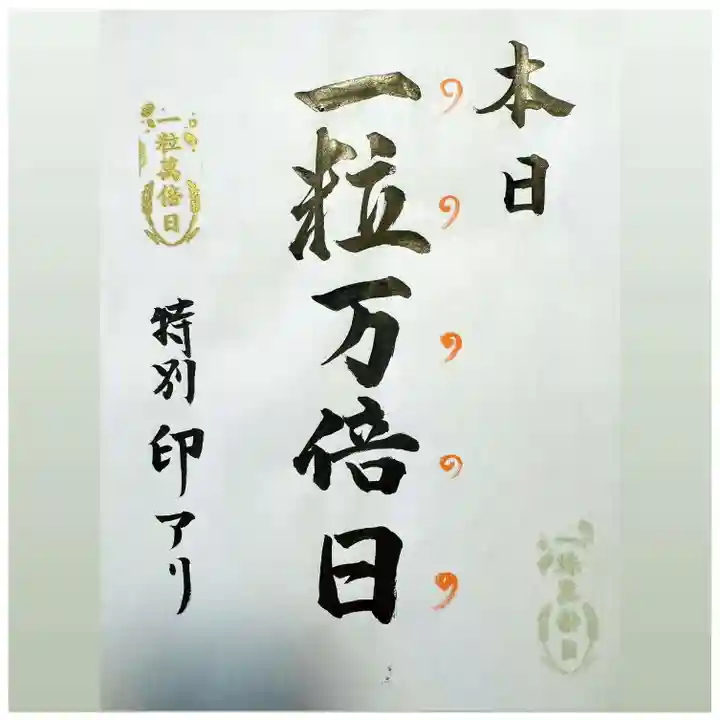 本日
一粒万倍日
一粒萬倍日
特別印アリ
一粒萬倍日